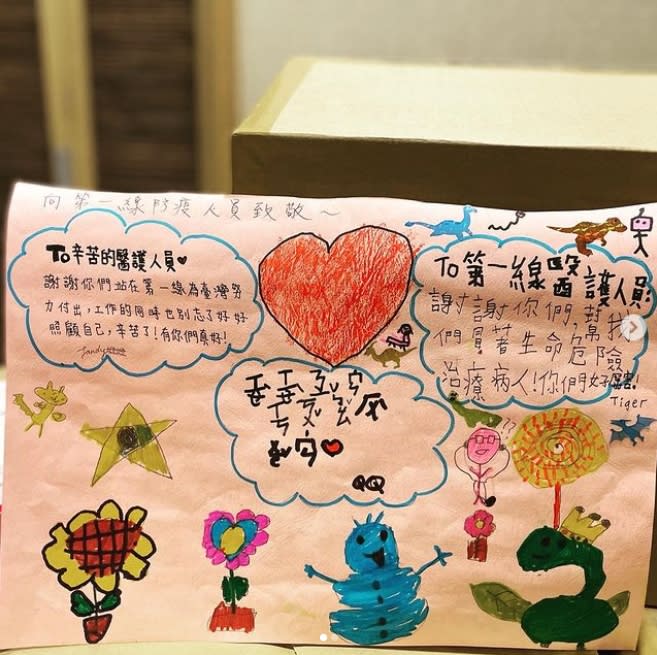 向第一線防疫人員致敬~
To辛苦的醫護人員♥
謝謝你們站在第一線為臺灣努
力付出,工作的同時也別忘了好好
照顧自己,辛苦了!有你們真好!
To第一線醫護人員:
謝謝你們,幫我
們冒著生命危險
治療病人!你們好厲害!
Tiger
QQ
??